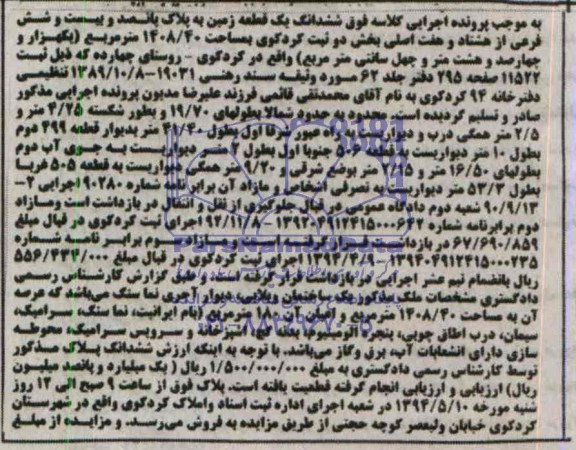 به موجب پرونده اجرایی کلاسه فوق ششدانگ یک قطعه زمین به پلاک پانصد و بیست و شش
فرعی از هشتاد و هفت اصلی بخش دو ثبت کردکوی بمساحت ۱۴۰۸/۴۰ مترمربع (یکهزار و
چهارصد و هشت متر و چهل سانتی متر مربع) واقع در کردکوی - روستای چهارده که ذیل ثبت
۱۱۵۲۲ صفحه ۲۹۵ دفتر جلد ۶۲ مورد وثیقه سند رهنی ۱۹۰۳۱-۱۳۸۹/۱۰/۸ تنظیمی
دفترخانه ۹۴ کردکوی به نام آقای محمدتقی قائمی فرزند علیرضا مدیون پرونده اجرایی مذکور
صادر و تسلیم گردیده است. محدود به حدود: شمالا بطولهای ۱۹/۷۰ و بطور شکسته ۴/۲۵ متر و
۲/۵ متر همگی درب و دیواریست به راه عبور شرقا اول بطول ۴۱/۴۰ متر بدیوار قطعه ۴۹۹ دوم
بطول ۱۰ متر دیواریست به قطعه جنوبا اول بطول ۲ متر دیواریست به جوی آب دوم
بطولهای ۱۶/۵۰ متر و ۲/۲۵ متر بوضع شرقی و ۹/۲۰ متر همگی دیواریست به قطعه ۵۰۵ غربا
بطول ۵۳/۳ متر دیواریست به تصرفی اشخاص و مازاد آن برابر نامه شماره ۹۰۲۸۰ اجرایی ۲-
۹۰/۹/۱۳ شعبه دوم دادگاه عمومی در قبال جلوگیری از نقل و انتقال در بازداشت است ومازاد
دوم برابرنامه شماره ۱۳۹۲۰۴۹۱۲۴۱۵۰۰۰۶۴۲ اجرای ثبت کردکوی در قبال مبلغ
۶۷/۶۹۰/۸۵۹ در بازداشت قرار گرفته سوم برابر نامه شماره
۱۳۹۴۰۴۹۱۲۴۱۵۰۰۰۲۳۵ اجرای ثبت کردکوی در قبال مبلغ ۵۵۶/۴۳۴/۰۰۰
ریال بانضمام نیم عشر اجرایی در بازداشت قرار گرفته است. و طبق گزارش کارشناس رسمی
دادگستری مشخصات ملک مذکور یک ساختمان ویلایی دیوار آجری نما سنگ می‌باشد که عرصه
آن به مساحت ۱۴۰۸/۴۰ مترمربع و اعیان آن ۱۸۰ مترمربع (بام ایرانیت، نما سنگ، سرامیک،
سیمان، درب اطاق چوبی، پنجره آلومینیوم، بدنه گچ، آشپزخانه و سرویس سرامیک، محوطه
سازی دارای انشعابات آب، برق وگاز می‌باشد. با توجه به اینکه ارزش ششدانگ پلاک مذکور
توسط کارشناس رسمی دادگستری به مبلغ ۱/۵۰۰/۰۰۰/۰۰۰ ریال ( یک میلیارد و پانصد میلیون
ریال) ارزیابی و ارزیابی انجام گرفته قطعیت یافته است. پلاک فوق از ساعت ۹ صبح الی ۱۲ روز
شنبه مورخه ۱۳۹۴/۵/۱۰ در شعبه اجرای اداره ثبت اسناد واملاک کردکوی واقع در شهرستان
کردکوی خیابان ولیعصر کوچه حجتی از طریق مزایده به فروش می‌رسد. و مزایده از مبلغ